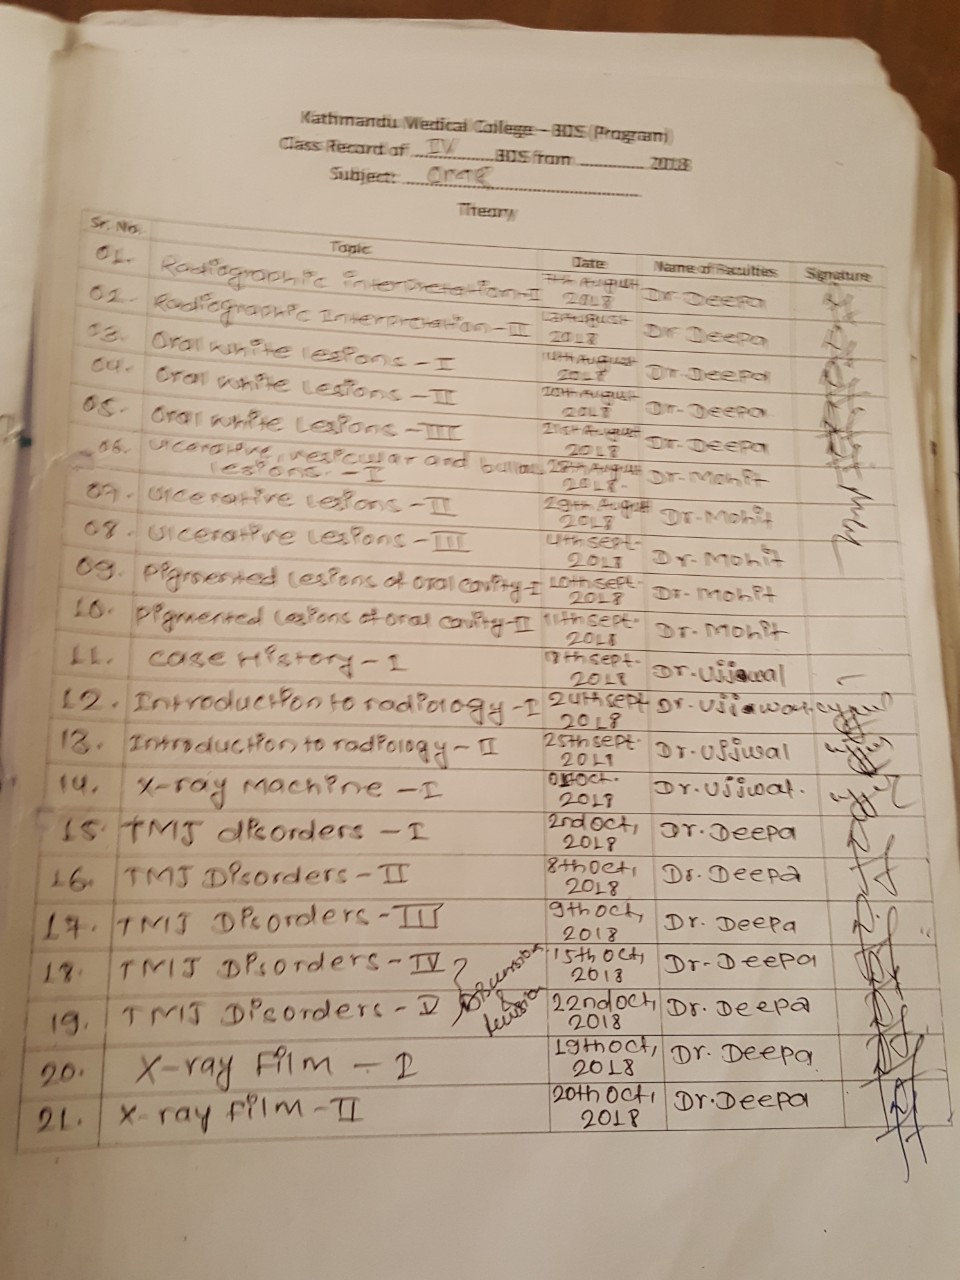 Kathmandu Medical College - BDS (Program)
Class Record of ....IV.... BDS from ............ 2018
Subject: ...OMR...
Theory
Sr. No. Topic Date Name of Faculties Signature
01. Radiographic interpretation-I 7th August 2018 Dr Deepa
02. Radiographic Interpretation-II 13 August 2018 Dr Deepa
03. Oral white lesions - I 14th August 2018 Dr. Deepa
04. Oral white Lesions - II 20th August 2018 Dr- Deepa
05. Oral white Lesions - III 21st August 2018 Dr Deepa
06. Ulcerative, vesicular and bullous lesions. - I 28th August 2018. Dr-Mohit
07. Ulcerative Lesions - II 29th August 2018 Dr-Mohit
08. Ulcerative Lesions - III 4th sept- 2018 Dr- Mohit
09. Pigmented Lesions of oral cavity-I 10th sept- 2018 Dr- Mohit
10. Pigmented Lesions of oral cavity-II 11th sept- 2018 Dr. Mohit
11. Case History - I 18th sept. 2018 Dr. Ujjwal
12. Introduction to radiology - I 24th sept 2018 Dr. Ujjwal
13. Introduction to radiology - II 25th sept. 2018 Dr. Ujjwal
14. X-ray Machine - I 01 Oct. 2018 Dr. Ujjwal.
15. TMJ disorders - I 2nd Oct, 2018 Dr. Deepa
16. TMJ Disorders - II 8th Oct, 2018 Dr. Deepa
17. TMJ Disorders - III 9th Oct, 2018 Dr. Deepa
18. TMJ Disorders - IV 15th Oct, 2018 Dr- Deepa
19. TMJ Disorders - V 22nd Oct, 2018 Dr. Deepa
20. X-ray Film - I 19th Oct, 2018 Dr. Deepa
21. X-ray Film - II 20th Oct, 2018 Dr. Deepa